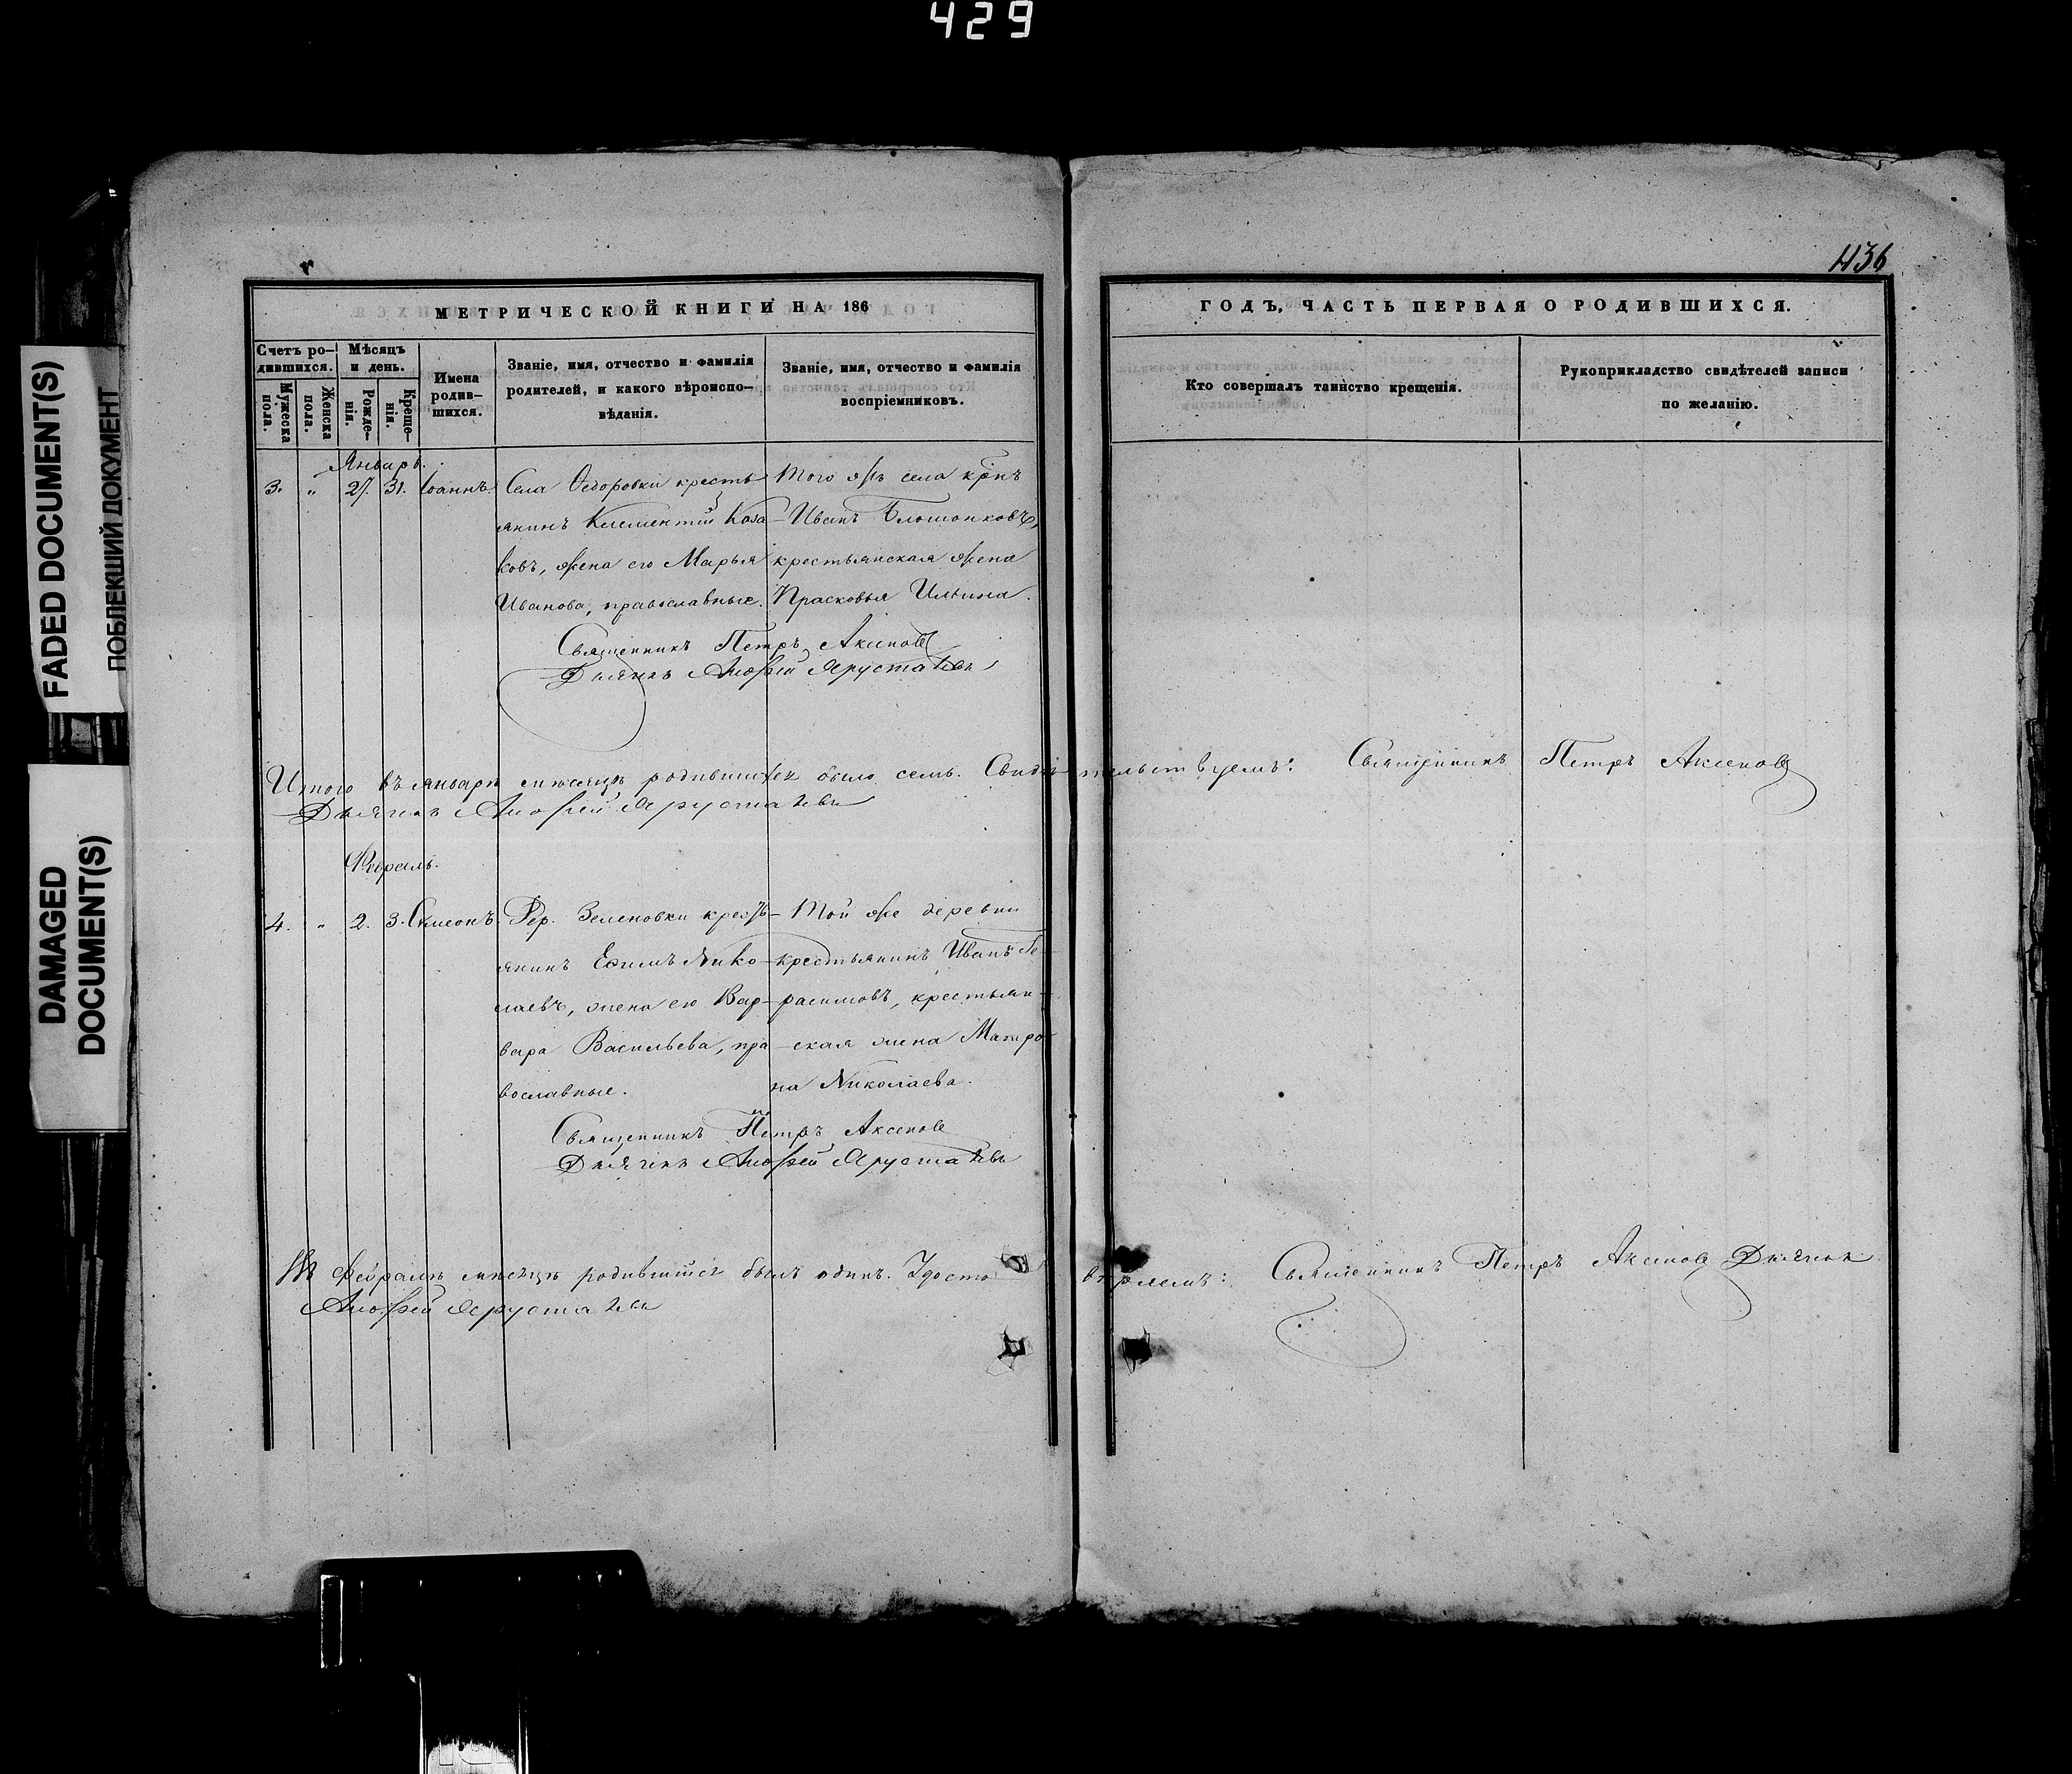 429
FADED DOCUMENT(S)
ПОБЛЕКШИЙ ДОКУМЕНТ
DAMAGED
DOCUMENT(S)
436
МЕТРИЧЕСКОЙ КНИГИ НА 186
ГОДЪ, ЧАСТЬ ПЕРВАЯ О РОДИВШИХСЯ.
Счетъ ро-
дившихся.
Мужеска
пола.
Женска
пола.
Мѣсяцъ
и день.
Рожде-
нія.
Креще-
нія.
Имена
родив-
шихся.
Званіе, имя, отчество и фамилія
родителей, и какого вѣроиспо-
вѣданія.
Званіе, имя, отчество и фамилія
воспріемниковъ.
Кто совершалъ таинство крещенія.
Рукоприкладство свидѣтелей записи
по желанію.
Январь.
3. " 27. 31. Іоаннъ.
Села Ѳедоровки кресть
янинъ Климентій Каза
ковъ, жена его Марья
Иванова, православные.
Того жъ села крнъ
Иванъ
крестьянская жена
Прасковья Ильина.
Священникъ Петръ Аксенов
Дьячекъ
Итого въ январѣ мѣсяцѣ родившихся было семь. Свидѣтельствуемъ: Священникъ Петръ Аксенов
Дьячекъ
Февраль.
4. " 2. 3. Симеонъ.
Дер. Зеленовки кресть-
янинъ Ефимъ Нико-
лаевъ, жена его Вар-
вара Васильева, пра-
вославные.
Той же деревни
крестьянинъ Иванъ Ге-
расимовъ, крестьян-
ская жена Матро-
на Николаева.
Священникъ Петръ Аксенов
Дьячекъ
Въ Февралѣ мѣсяцѣ родившійся былъ одинъ. Удосто вѣряемъ: Священникъ Петръ Аксенов Дьячек